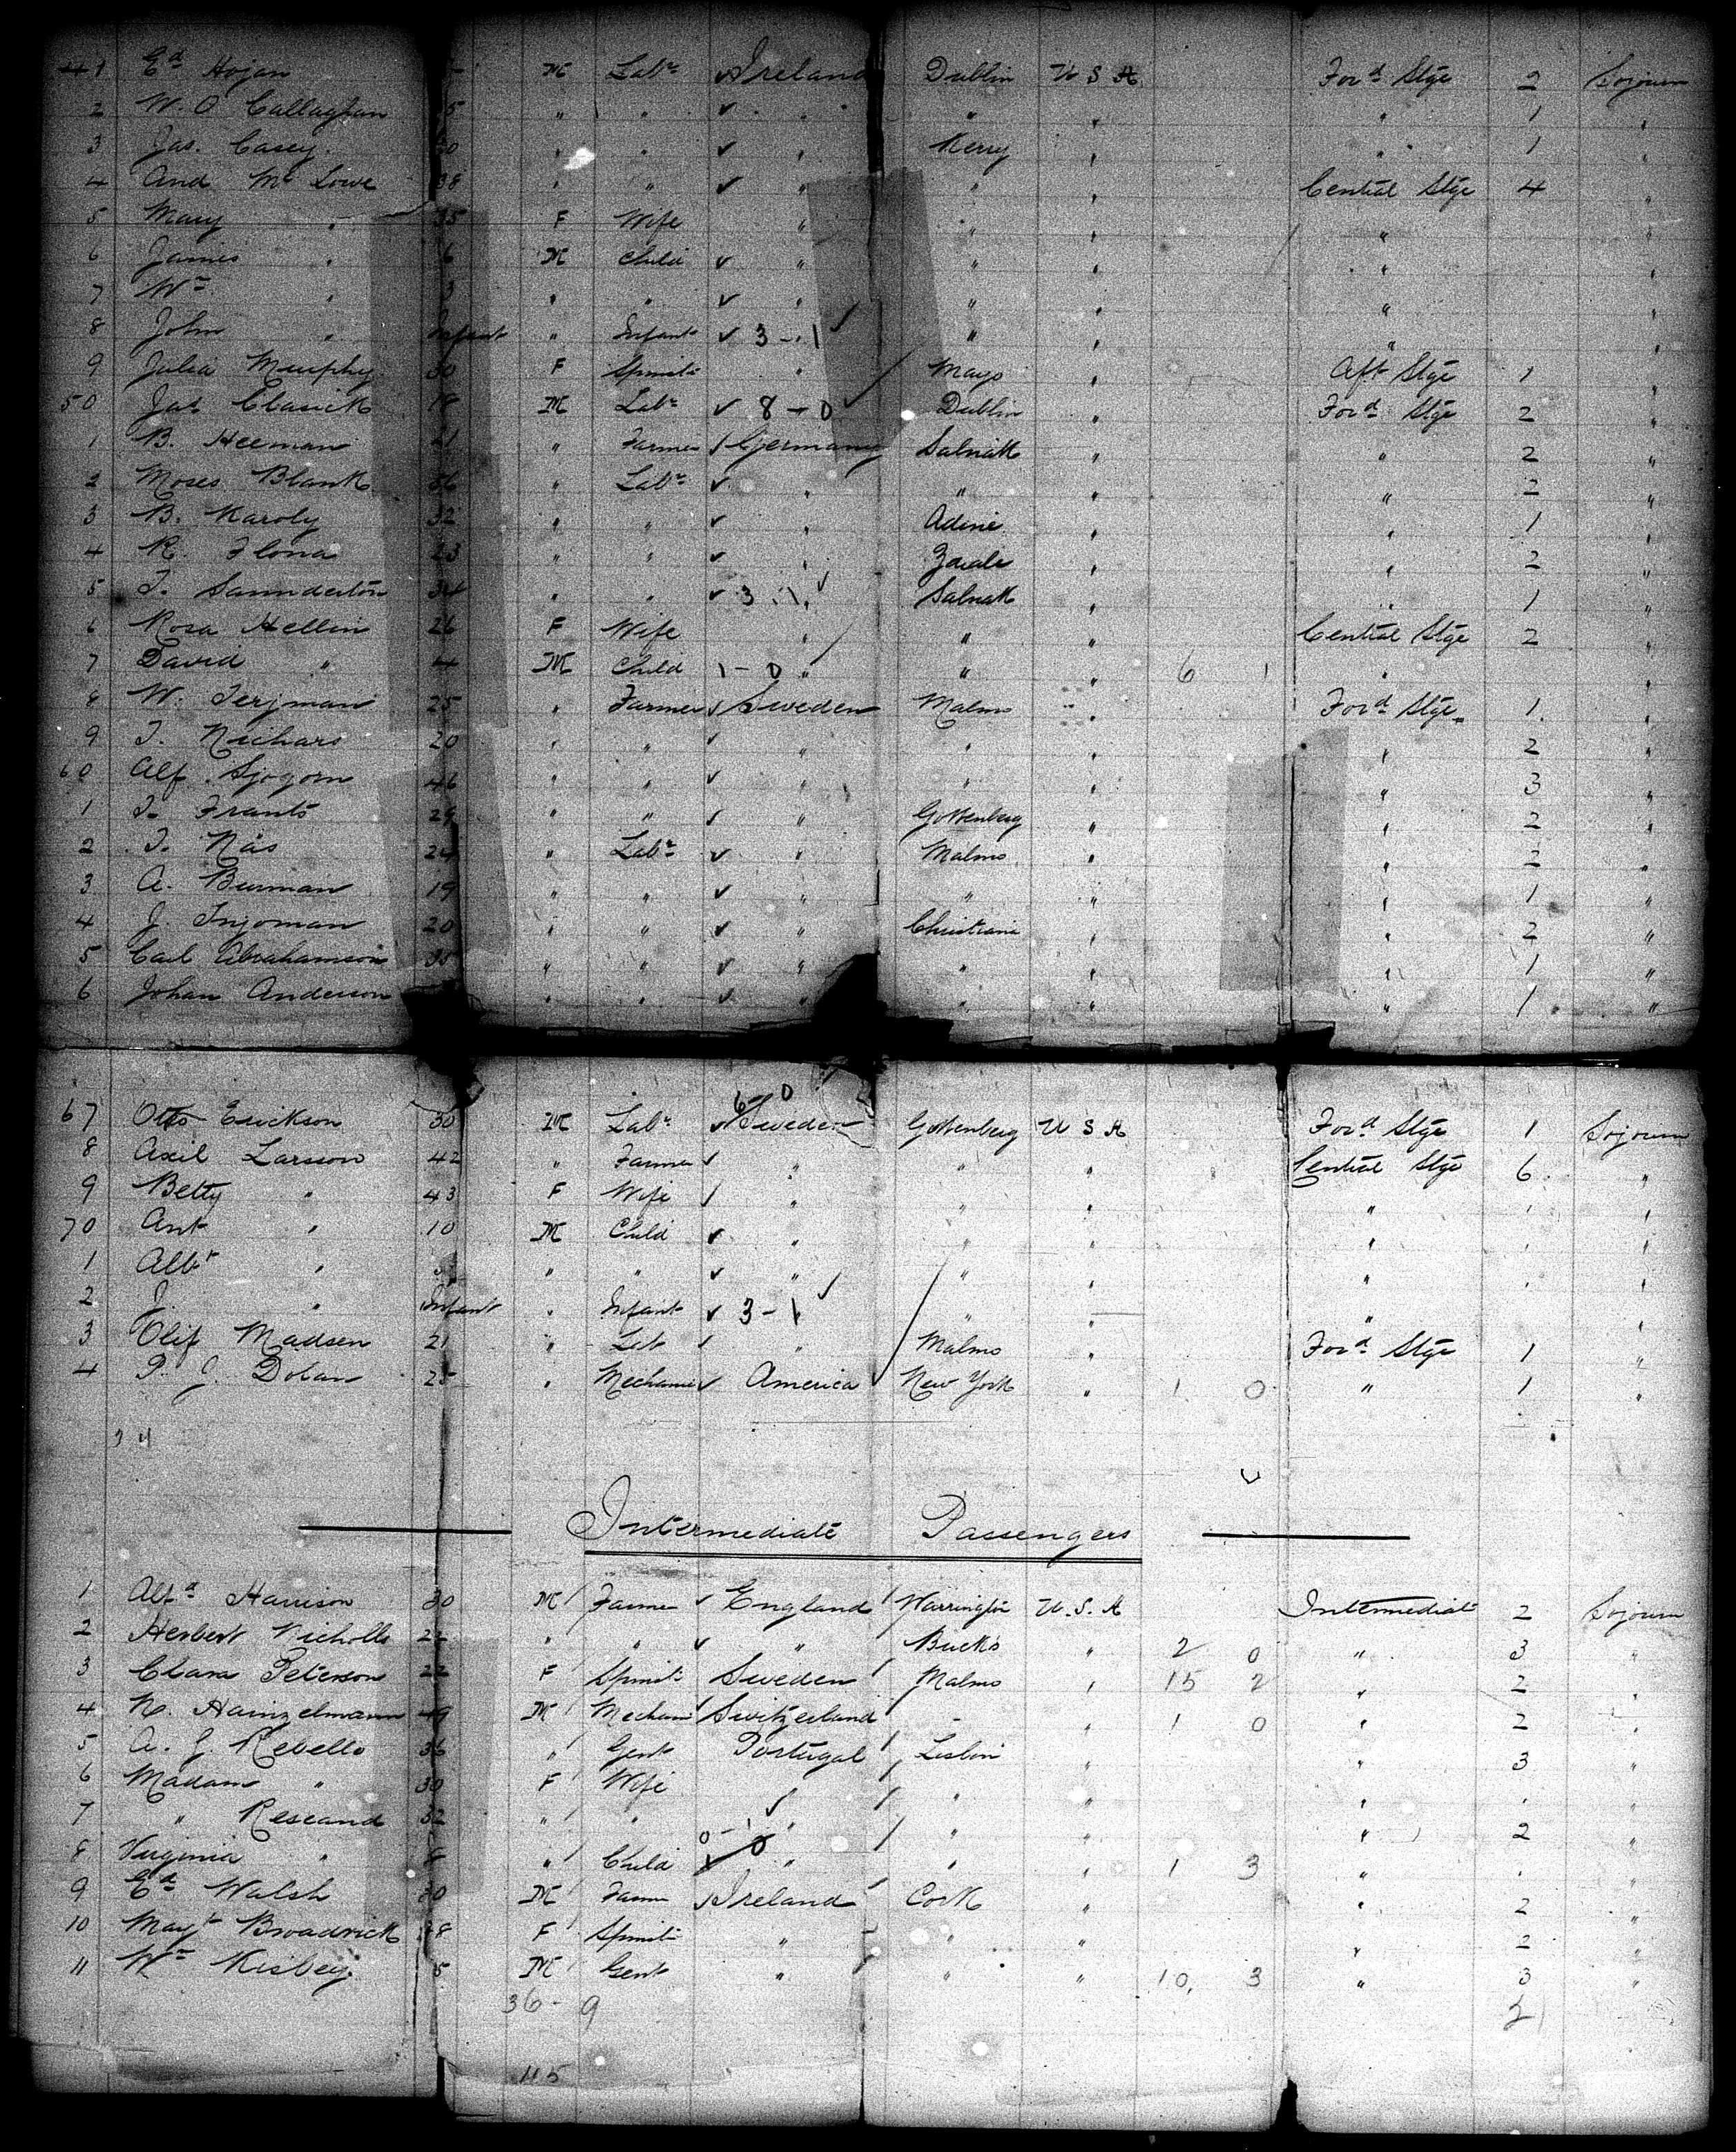 41 Ed Hojan M Labr Ireland Dublin U S A Ford Stge 2 Sojourn
2 W. O Callaghan 35 " " " " " " 1 "
3 Jas. Casey. " " " Kerry " " 1 "
4 And Mc Lowe 38 " " " " " Central Stge 4 "
5 Mary " 35 F Wife " " " " "
6 James " 6 M Child " " " " "
7 Wm " 3 " " " " " " "
8 John " Infant " Infant 3 - 1 " " " "
9 Julia Murphy 30 F Spinstr " Mayo " Aft Stge 1 "
50 Jas Clasick 18 M Labr 8 - 0 Dublin " Ford Stge 2 "
1 B. Heeman 21 " Farmer Germany Salnatk " " 2 "
2 Moses Blank 36 " Labr " " " " 2 "
3 B. Karoly 32 " " " Adine " " 1 "
4 R. Ilona 23 " " " " " 2 "
5 T. Saunderton 34 " " 3 . 1 Salnatk " " 1 "
6 Rosa Hellin 26 F Wife " " " Central Stge 2 "
7 David " 4 M Child 1 - 0 " " " 6 1 " "
8 W. Terjman 25 " Farmer Sweden Malmo " Ford Stge 1 "
9 T. Richars 20 " " " " " " 2 "
60 Alf. Sjogorn 46 " " " " " " 3 "
1 T. Frants 29 " " " Gottenberg " " 2 "
2 T. Nås 24 " Labr " Malmo " " 2 "
3 A. Burman 19 " " " " " " 1 "
4 J. Ingoman 20 " " " Christiania " " 2 "
5 Carl Abrahamson 35 " " " " " " 1 "
6 Johan Anderson " " " " " " 1 "
6 - 0
67 Otto Erickson 30 M Labr Sweden Gottenberg U S A Ford Stge 1 Sojourn
8 Axil Larsson 42 " Farmer " " " Central Stge 6 "
9 Betty " 43 F Wife " " " " " "
70 Ant " 10 M Child " " " " " "
1 Albt " " " " " " " " "
2 J. " Infant " Infant 3 - 1 " " " "
3 Olif Madsen 21 " Lab " Malmo " Ford Stge 1 "
4 P. J. Dolan 25 " Mechanic America New York " 1 0 " 1 "
Intermediate Passengers
1 Alfd Harrison 30 M Farmer England Warrington U. S. A Intermediate 2 Sojourn
2 Herbert Nicholls 22 " " " Bucks " 2 0 " 3 "
3 Clara Peterson 22 F Spinstr Sweden Malmo " 15 2 " 2 "
4 N. Hainzelmann 49 M Mechani Switzerland - " 1 0 " 2 "
5 A. J. Rebello 36 " Gent Portugal Lisbon " " 3 "
6 Madam " 30 F Wife " " " " " "
7 " Reseand 32 " " " " " " 2 "
0 - 1
8 Virginia " 8 " Child 0 " " " 1 3 " " "
9 Ed Walsh 30 M Farmr Ireland Cork " " 2 "
10 Mayt Broadrick 28 F Spinstr " " " " 2 "
11 Wm Kisbey. M Gent " " " 10, 3 " 3 "
36 - 9
115